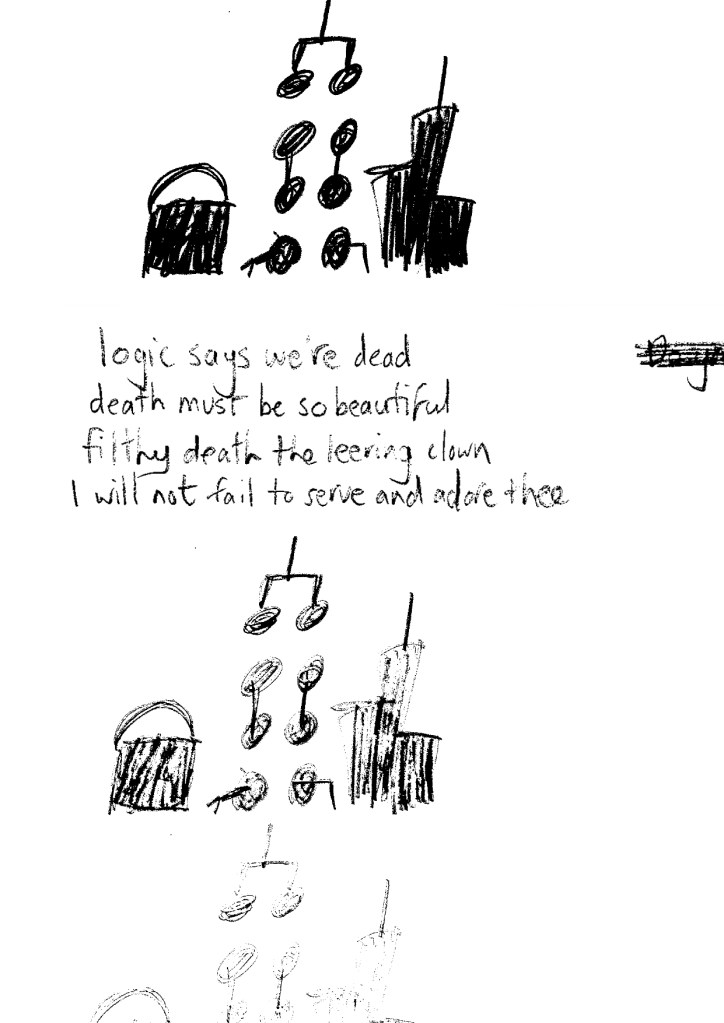 logic says we're dead
death must be so beautiful
filthy death the leering clown
I will not fail to serve and adore thee